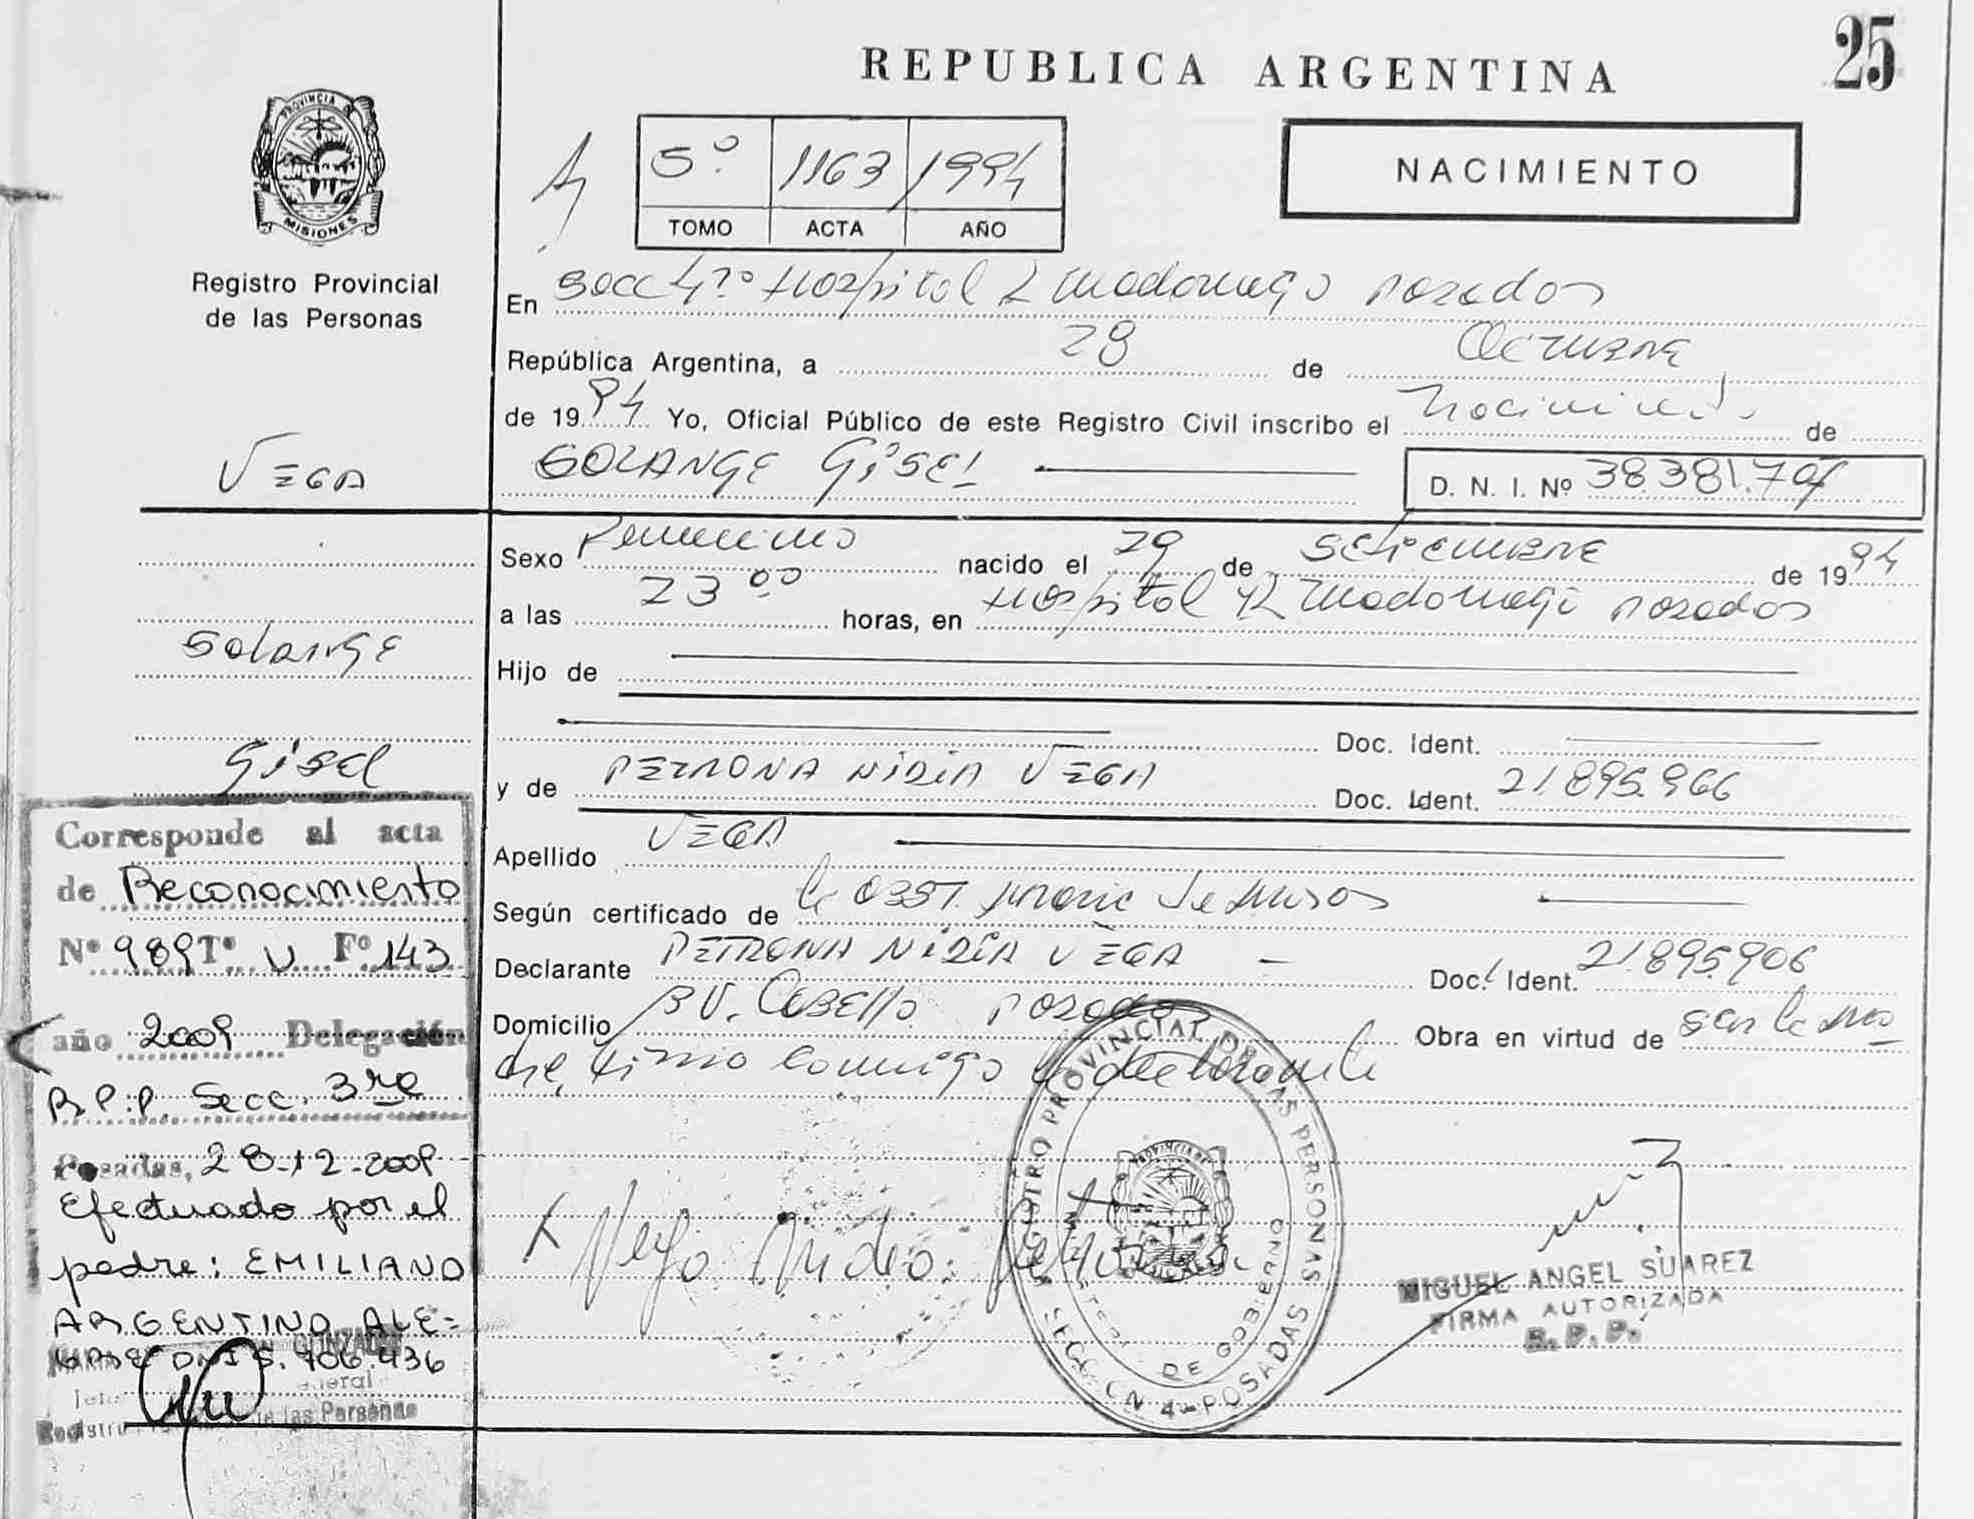 25
REPUBLICA ARGENTINA
PROVINCIA DE
MISIONES
Registro Provincial
de las Personas
5º 1163 1994
TOMO ACTA AÑO
NACIMIENTO
En Secc 4º Hospital R Madariaga Posadas
República Argentina, a 28 de Octubre
de 1994 Yo, Oficial Público de este Registro Civil inscribo el nacimiento de
SOLANGE GISEL
D. N. I. Nº 38.381.70
VEGA
Solange
Gisel
Sexo Femenino nacido el 29 de Setiembre de 1994
a las 23 00 horas, en Hospital R Madariaga Posadas
Hijo de
Doc. Ident.
y de PETRONA NIDIA VEGA Doc. Ident. 21.895.966
Apellido VEGA
Según certificado de
Declarante PETRONA NIDIA VEGA Doc. Ident. 21.895.906
Domicilio Posadas Obra en virtud de
firma conmigo declarante
Corresponde al acta
de Reconocimiento
Nº 989 Tº V Fº 143
año 2009 Delegación
R.P.P. Secc. 3ra
Posadas, 28-12-2009
Efectuado por el
padre: EMILIANO
ARGENTINO ALE=
GRE DNI 5.706.436
GONZALEZ
Registro de las Personas
REGISTRO PROVINCIAL DE LAS PERSONAS
MINISTERIO DE GOBIERNO
SECCION 4ª POSADAS
Vega Nidia Petrona
MIGUEL ANGEL SUAREZ
FIRMA AUTORIZADA
R. P. P.